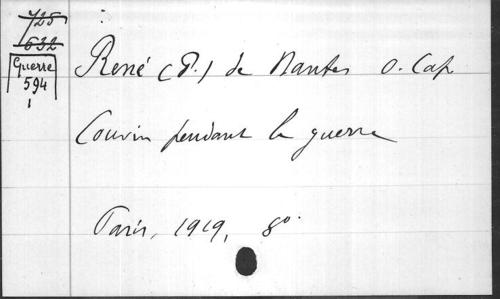 725
632
Guerre
594
1
René (P.) de Nantes O. Cap.
Couvin pendant la guerre
Paris, 1919, 8º.